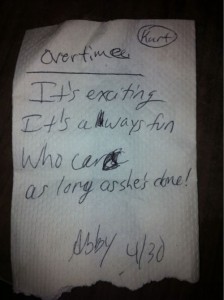 Kurt
Overtime
It's exciting
It's always fun
Who cares
as long as she's done!
Abby 4/30